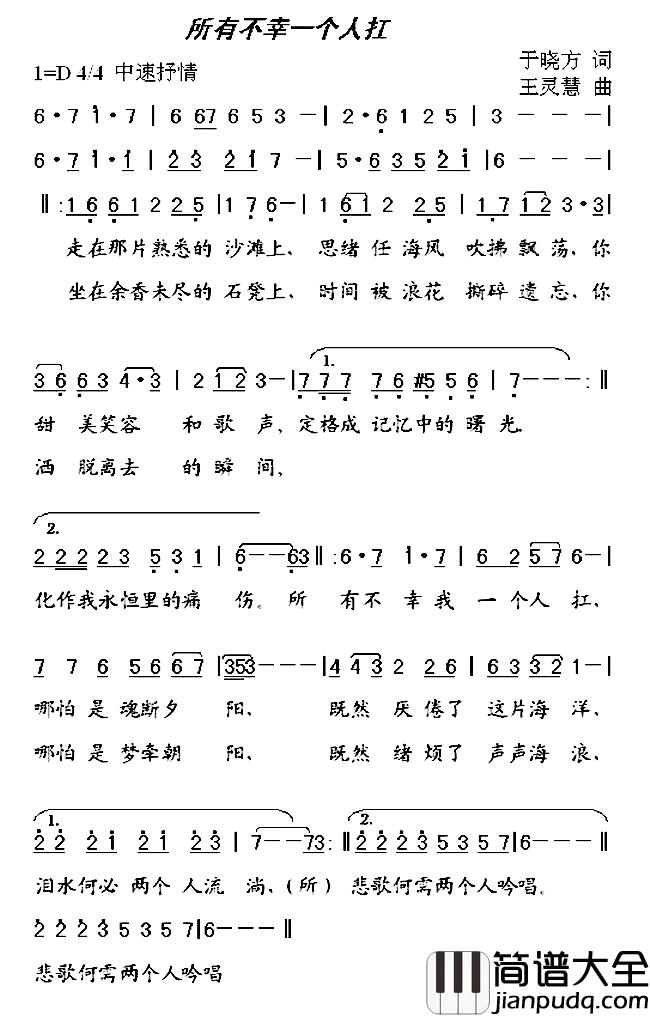 所有不幸一个人扛
1=D 4/4 中速抒情
于晓方 词
王灵慧 曲
6·7 1·7 | 6 67 6 5 3 — | 2·6 1 2 5 | 3 — — — |
6·7 1·1 | 2 3 2 1 7 — | 5·6 3 5 2 1 | 6 — — — |
‖: 1 6 6 1 2 2 5 | 1 7 6 — | 1 6 1 2 2 5 | 1 7 1 2 3·3 |
走在那片熟悉的 沙滩上、 思绪 任 海风 吹拂 飘 荡、你
坐在余香未尽的 石凳上、 时间 被 浪花 撕碎 遗 忘、你
3 6 6 3 4·3 | 2 1 2 3 — | 7 7 7 7 6 #5 5 6 | 7 — — — :‖
1.
甜 美笑容 和 歌 声、定格成 记忆中的 曙 光.
洒 脱离去 的 瞬 间,
2.
2 2 2 2 3 5 3 1 | 6 — — 6 3 ‖: 6·7 1·7 | 6 2 5 7 6 — |
化作我永恒里的痛 伤。所 有不 幸我 一个人 扛、
7 7 6 5 6 6 7 | 353 — — — | 4 4 3 2 2 6 | 6 3 3 2 1 — |
哪怕 是 魂断夕 阳、 既然 厌 倦了 这片海 洋、
哪怕 是 梦牵朝 阳、 既然 绪 烦了 声声海 浪、
1.
2.
2 2 2 1 2 1 2 3 | 7 — — 7 3 :‖ 2 2 2 3 5 3 5 7 | 6 — — — ‖
泪水何必 两个 人流 淌、(所) 悲歌何需两个人吟唱。
2 2 2 3 5 3 5 7 | 6 — — — ‖
悲歌何需两个人吟唱
简谱大全
jianpudq.com